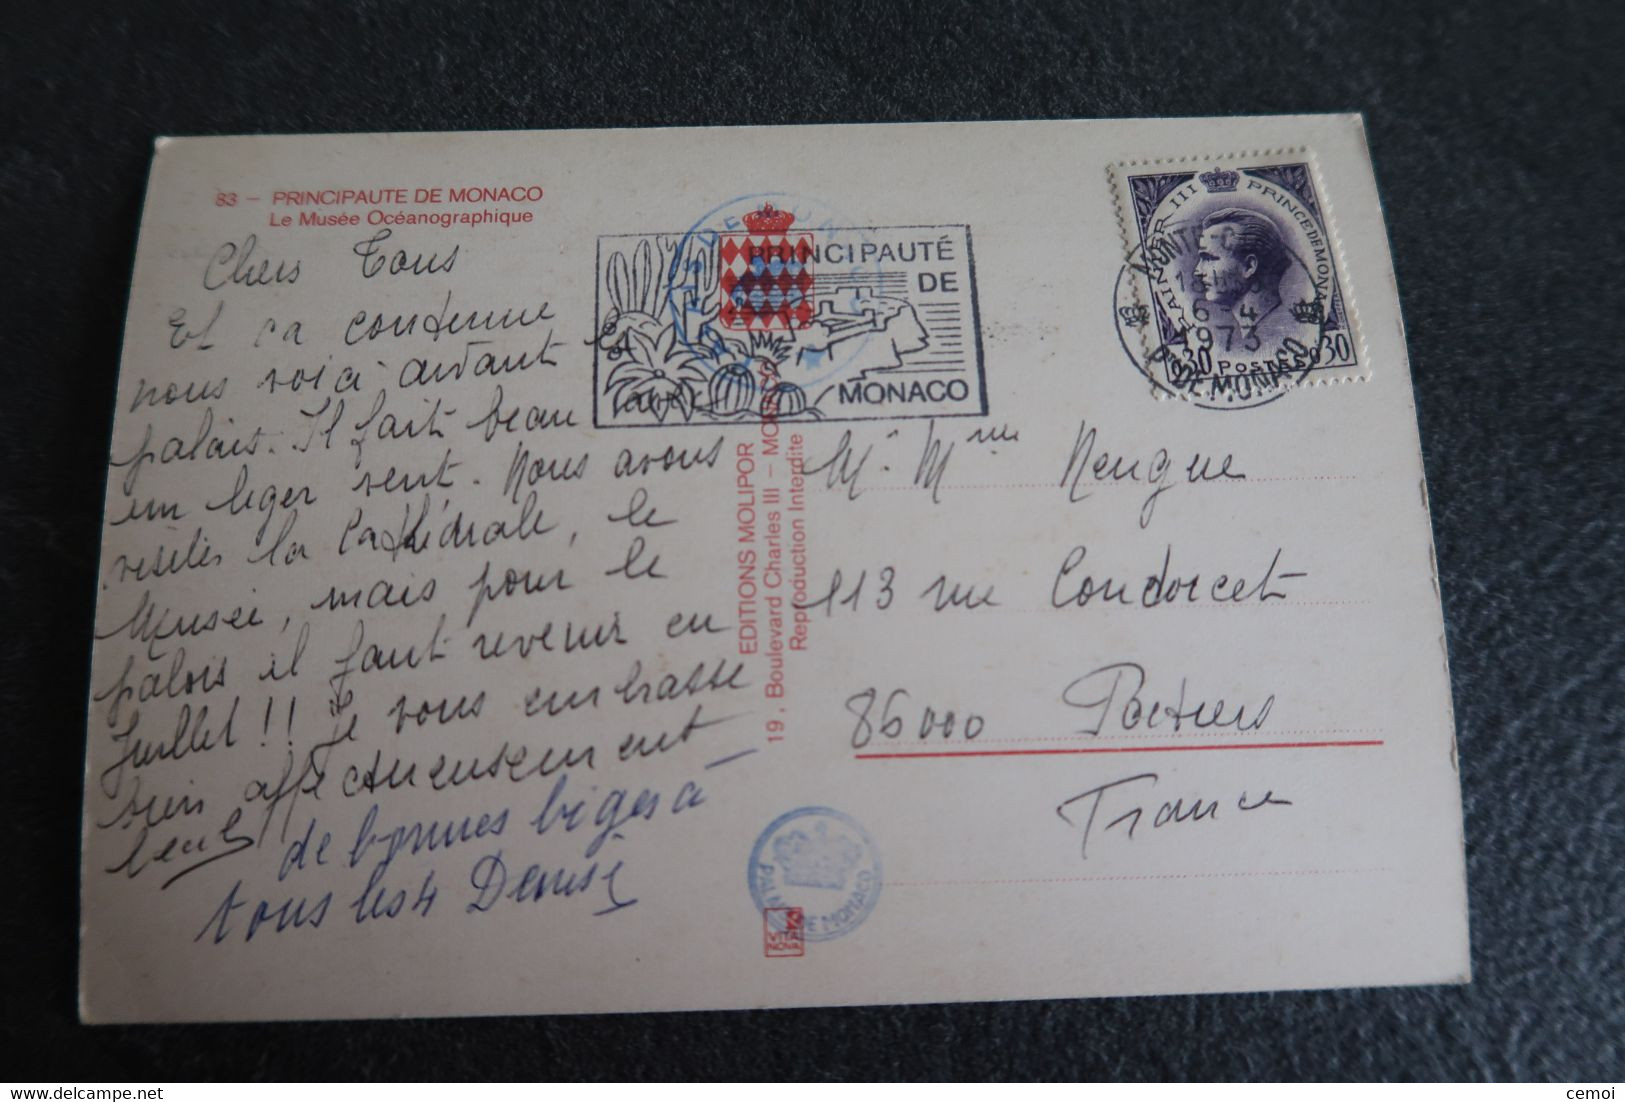 83 – PRINCIPAUTE DE MONACO
Le Musée Océanographique
Chers Tous
Et ca continue
nous voici devant le
palais. Il fait beau avec
un leger vent. Nous avons
visités la Cathédrale, le
Musée, mais pour le
palais il faut revenir en
Juillet !! Je vous embrasse
bien affectueusement
de bonnes biges à
tous les 4 Denise
PRINCIPAUTÉ
DE
MONACO
EDITIONS MOLIPOR
19, Boulevard Charles III – MONACO
Reproduction Interdite
RAINIER III PRINCE DE MONACO
0,30 POSTES 0,30
MONTE-CARLO
6-4
1973
PTE DE MONACO
Mr Mme Nengue
113 rue Condorcet
86000 Poitiers
France
PALAIS DE MONACO
PALAIS DE MONACO
VITA
NOVA
cemoi